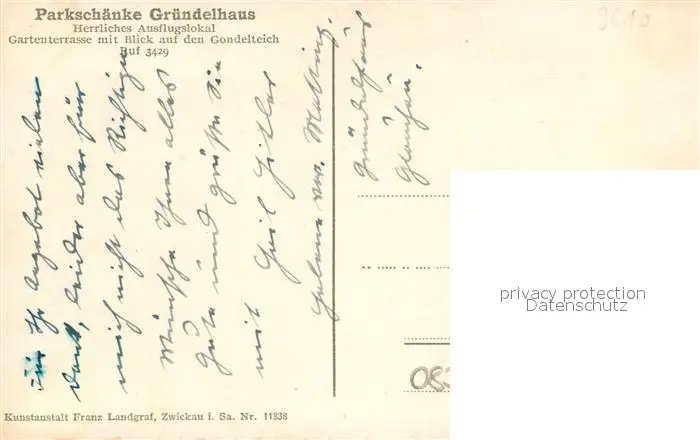 Parkschänke Gründelhaus
Herrliches Ausflugslokal
Gartenterrasse mit Blick auf den Gondelteich
Ruf 3429
Für Ihr Angebot vielen
Dank, leider aber für
mich nicht das Richtige
Wünsche Ihnen alles
Gute und grüße Sie
mit Heil Hitler
Helene
Gründelhaus
Glauchau.
Kunstanstalt Franz Landgraf, Zwickau i. Sa. Nr. 11838
privacy protection
Datenschutz